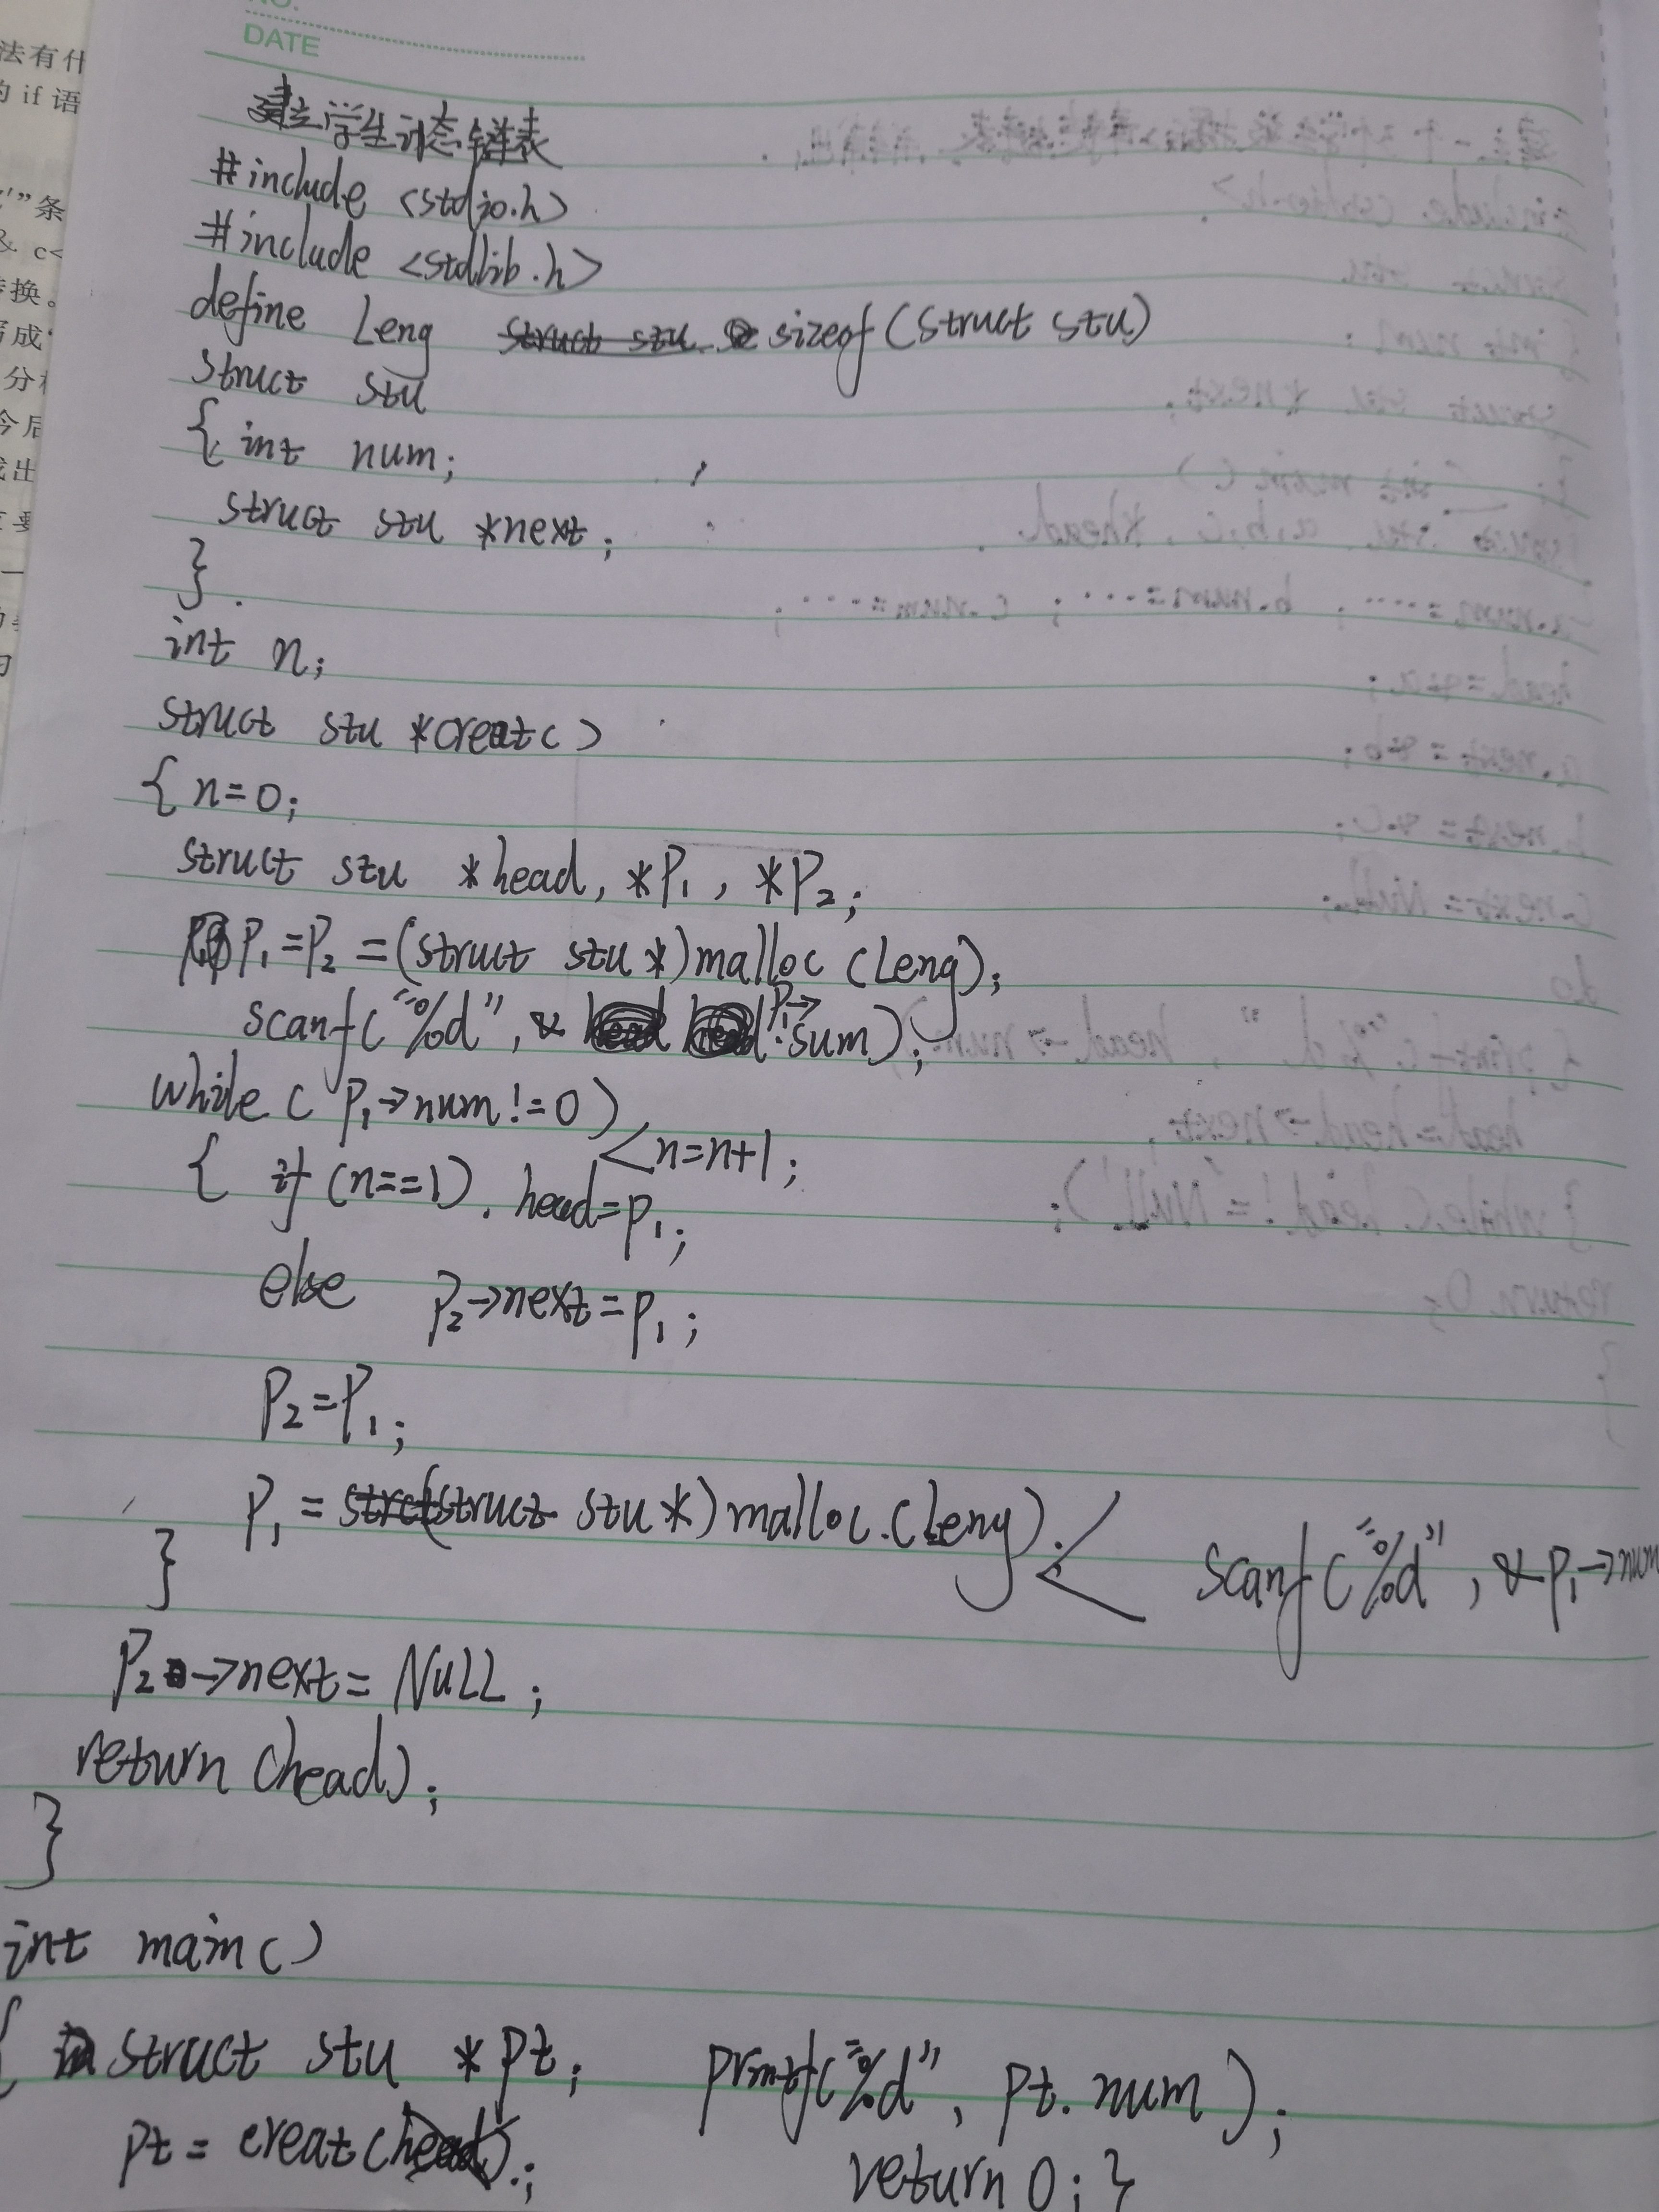 NO.
DATE
法有什
的 if 语
’”条
& c<
转换。
写成‘
分
今后
出
要
一
建立学生动态链表
#include <stdio.h>
#include <stdlib.h>
define Leng sizeof(struct stu)
struct stu
{ int num;
struct stu *next;
}
int n;
struct stu *creat()
{ n=0;
struct stu *head, *P1, *P2;
P1=P2=(struct stu *)malloc(Leng);
scanf("%d", & P1→sum);
while( P1→num!=0)
<n=n+1;
{ if (n==1). head=P1;
else P2→next=P1;
P2=P1;
P1=(struct stu *)malloc.(Leng);< scanf("%d", &P1→num
}
P2→next=NULL;
return (head);
}
int main()
{ struct stu *pt; printf("%d", pt.num);
pt = creat( ).; return 0; }